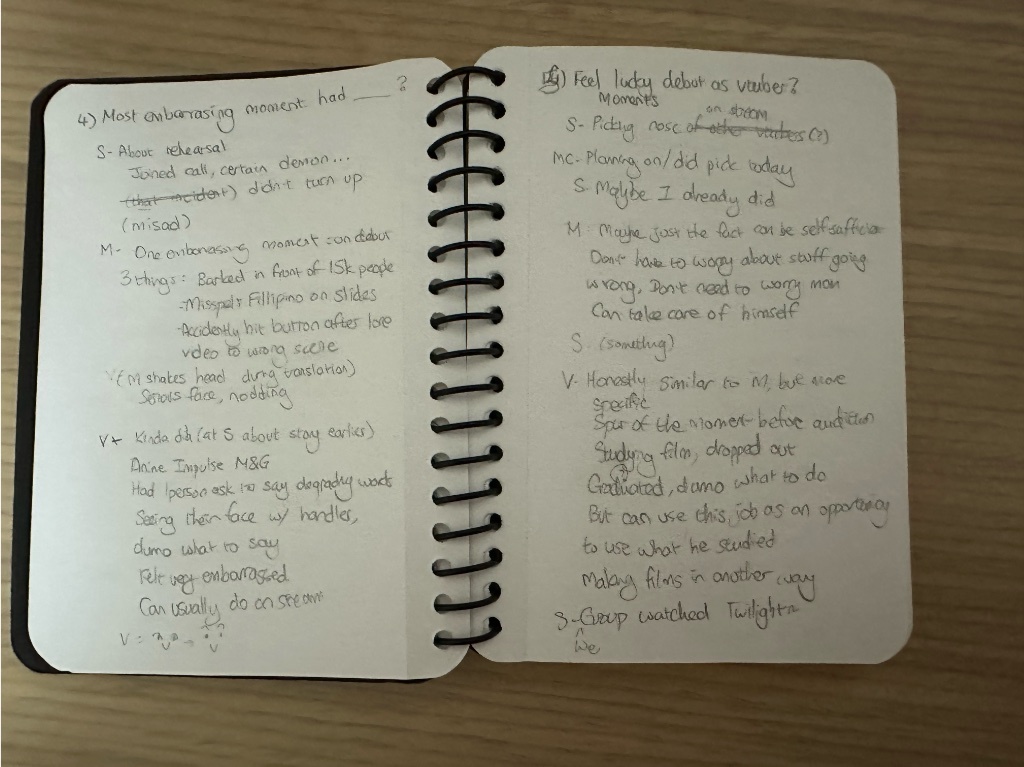 4) Most embarrasing moment had ___ ?
S- About rehearsal
Joined call, certain demon...
(that incident) didn't turn up
(misad)
M- One embarrassing moment on debut
3 things: Barked in front of 15k people
-Misspelt Fillipino on slides
-Accidently hit button after lore
video to wrong scene
(M shakes head during translation)
Serious face, nodding
V- Kinda did (at S about stay earlier)
Anime Impulse M&G
Had 1 person ask to say degrading words
Seeing their face w/ handlers,
dunno what to say
Felt very embarrassed
Can usually do on stream
V =
5) Feel lucky debut as vtuber?
Moments
on stream
S- Picking nose of other vtubers (?)
MC- Planning on/did pick today
S- Maybe I already did
M- Maybe just the fact can be self sufficient
Don't have to worry about stuff going
wrong, Don't need to worry mom
Can take care of himself
S- (something)
V- Honestly similar to M, but more
specific
Spur of the moment before audition
Studying film, dropped out
(?)
Graduated, dunno what to do
But can use this job as an opportunity
to use what he studied
Making films in another way
S- Group watched Twilight
We